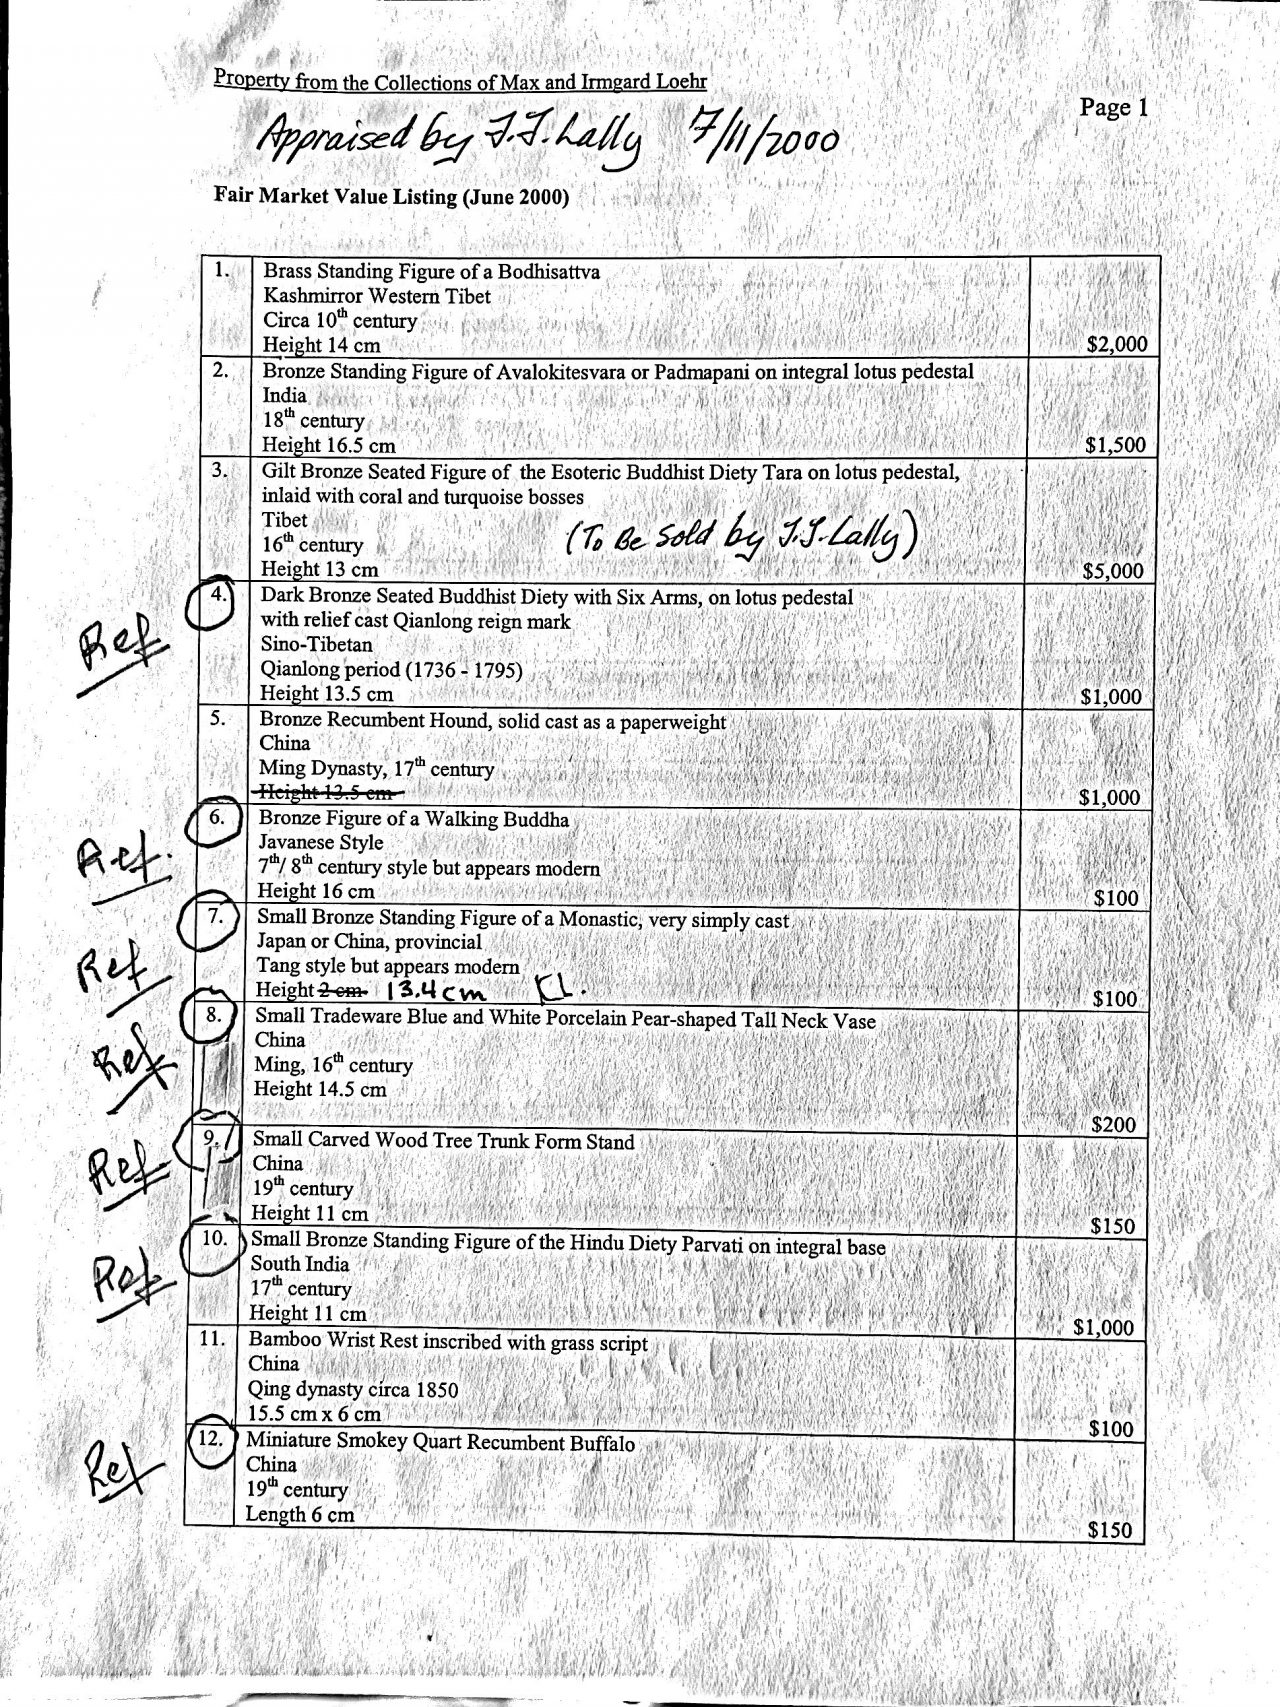 Property from the Collections of Max and Irmgard Loehr
Page 1
Appraised by J.J. Lally 7/11/2000
Fair Market Value Listing (June 2000)
1. Brass Standing Figure of a Bodhisattva
Kashmirror Western Tibet
Circa 10th century
Height 14 cm $2,000
2. Bronze Standing Figure of Avalokitesvara or Padmapani on integral lotus pedestal
India
18th century
Height 16.5 cm $1,500
3. Gilt Bronze Seated Figure of the Esoteric Buddhist Diety Tara on lotus pedestal,
inlaid with coral and turquoise bosses
Tibet
16th century (To Be Sold by J.J. Lally)
Height 13 cm $5,000
4. Dark Bronze Seated Buddhist Diety with Six Arms, on lotus pedestal
Ref with relief cast Qianlong reign mark
Sino-Tibetan
Qianlong period (1736 - 1795)
Height 13.5 cm $1,000
5. Bronze Recumbent Hound, solid cast as a paperweight
China
Ming Dynasty, 17th century
Height 13.5 cm $1,000
6. Bronze Figure of a Walking Buddha
Ref. Javanese Style
7th/ 8th century style but appears modern
Height 16 cm $100
7. Small Bronze Standing Figure of a Monastic, very simply cast
Japan or China, provincial
Ref Tang style but appears modern
Height 2 cm 13.4 cm KL. $100
8. Small Tradeware Blue and White Porcelain Pear-shaped Tall Neck Vase
China
Ref Ming, 16th century
Height 14.5 cm
$200
9. Small Carved Wood Tree Trunk Form Stand
Ref China
19th century
Height 11 cm $150
10. Small Bronze Standing Figure of the Hindu Diety Parvati on integral base
South India
Ref 17th century
Height 11 cm $1,000
11. Bamboo Wrist Rest inscribed with grass script
China
Qing dynasty circa 1850
15.5 cm x 6 cm $100
12. Miniature Smokey Quart Recumbent Buffalo
Ref China
19th century
Length 6 cm $150